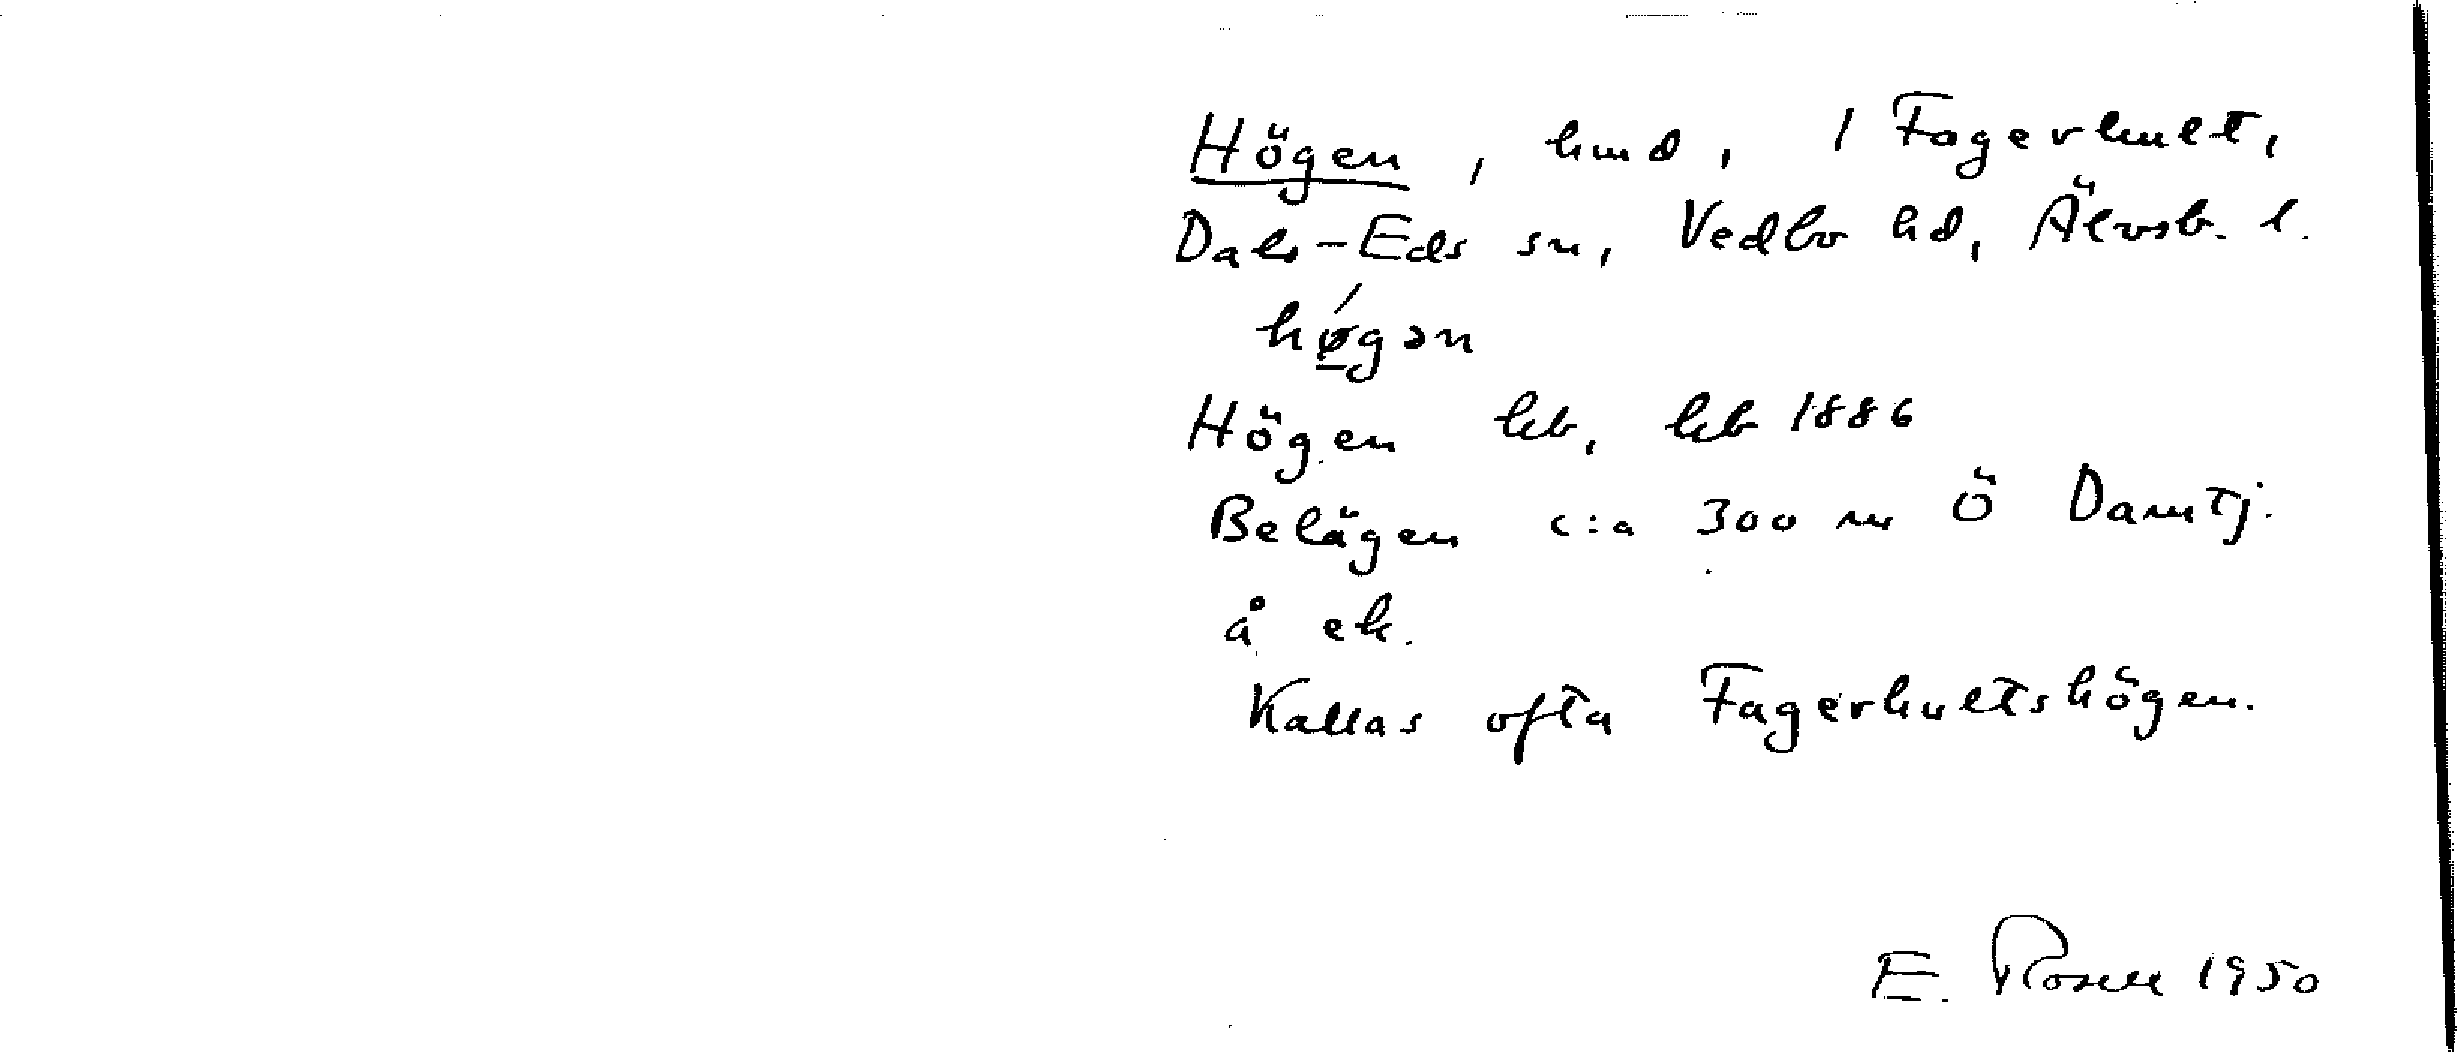 Högen, hmd, 1 Fagerhult,
Dals-Eds sn, Vedbo hd, Älvsb. l.
hǿ̱gən
Högen hb, hb 1886
Belägen c:a 300 m Ö Damtj.
å ek.
Kallas ofta Fagerhultshögen.
E. Rosell 1950